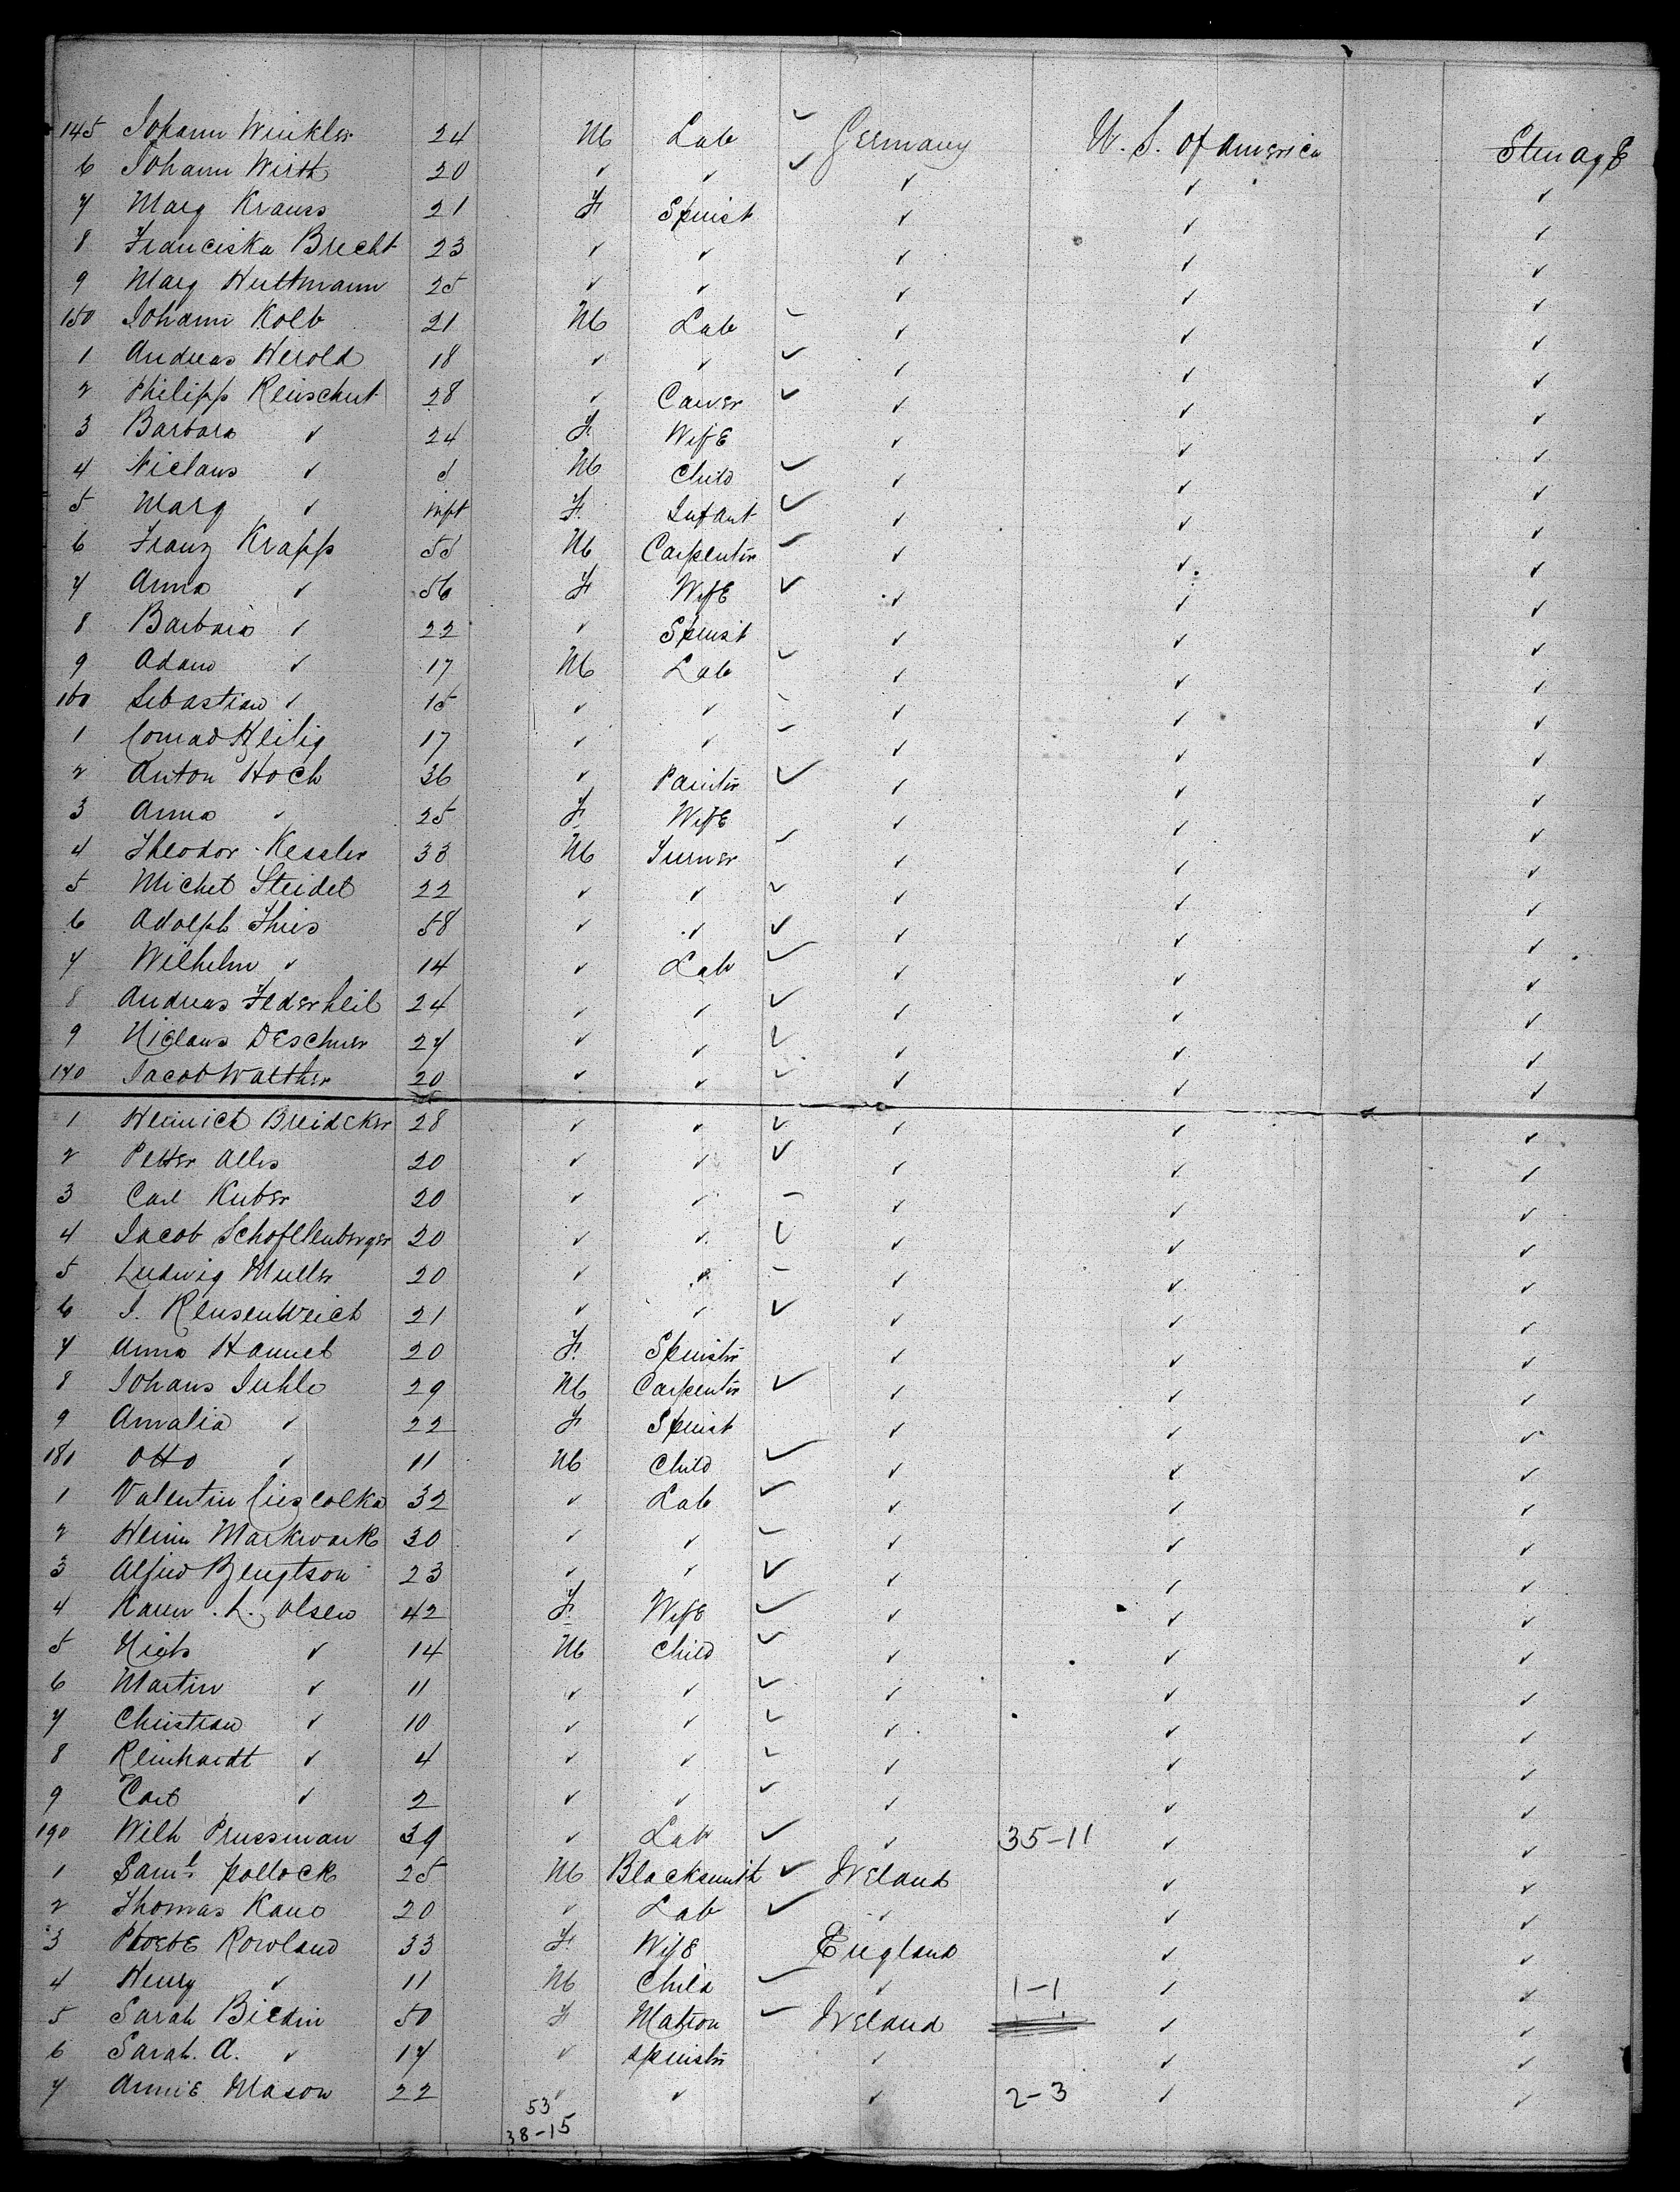 145 Johann Winkler 24 M Lab ✓ Germany U. S. of America Steerage
6 Johann Wirth 20 ✓ ✓ ✓ ✓ ✓ ✓
7 Marg Krauss 21 F Spinst ✓ ✓ ✓
8 Franciska Brecht 23 ✓ ✓ ✓ ✓ ✓
9 Marg Huttmann 25 ✓ ✓ ✓ ✓ ✓
150 Johann Kolb 21 M Lab ✓ ✓ ✓ ✓
1 Andreas Herold 18 ✓ ✓ ✓ ✓ ✓ ✓
2 Philipp 28 ✓ Carver ✓ ✓ ✓ ✓
3 Barbara ✓ 24 F. Wife ✓ ✓ ✓
4 Niclaus ✓ M Child ✓ ✓ ✓ ✓
5 Marg ✓ inft F. Infant ✓ ✓ ✓ ✓
6 Franz Krapp 55 M Carpenter ✓ ✓ ✓ ✓
7 Anna ✓ 56 F Wife ✓ ✓ ✓ ✓
8 Barbara ✓ 22 ✓ Spinst ✓ ✓ ✓
9 Adam ✓ 17 M Lab ✓ ✓ ✓ ✓
160 Sebastian ✓ 15 ✓ ✓ ✓ ✓ ✓ ✓
1 Conrad Heilig 17 ✓ ✓ ✓ ✓ ✓ ✓
2 Anton Hoch 36 ✓ Painter ✓ ✓ ✓ ✓
3 Anna ✓ 25 F Wife ✓ ✓ ✓
4 Theodor Kessler 33 M Turner ✓ ✓ ✓ ✓
5 Michel Steidel 22 ✓ ✓ ✓ ✓ ✓ ✓
6 Adolph Thies 58 ✓ ✓ ✓ ✓ ✓ ✓
7 Wilhelm ✓ 14 ✓ Lab ✓ ✓ ✓ ✓
8 Andreas Federkeil 24 ✓ ✓ ✓ ✓ ✓ ✓
9 Niclaus Deschner 27 ✓ ✓ ✓ ✓ ✓ ✓
170 Jacob Walther 20 ✓ ✓ ✓ ✓ ✓ ✓
1 Heinrich Breidcker 28 ✓ ✓ ✓ ✓ ✓ ✓
2 Petter Alles 20 ✓ ✓ ✓ ✓ ✓ ✓
3 Carl Kuber 20 ✓ ✓ – ✓ ✓ ✓
4 Jacob Schofllenberger 20 ✓ ✓ ✓ ✓ ✓ ✓
5 Ludwig Muller 20 ✓ ✓ – ✓ ✓ ✓
6 J. 21 ✓ ✓ ✓ ✓ ✓ ✓
7 Anna Hannel 20 F. Spinster ✓ ✓ ✓
8 Johans 29 M Carpenter ✓ ✓ ✓ ✓
9 Amalia ✓ 22 F Spinst ✓ ✓ ✓
180 Otto ✓ 11 M Child ✓ ✓ ✓ ✓
1 Valentin 32 ✓ Lab ✓ ✓ ✓ ✓
2 Heinr Markwark 30 ✓ ✓ ✓ ✓ ✓ ✓
3 Alfred Bengtson 23 ✓ ✓ ✓ ✓ ✓ ✓
4 Karen L. Olsen 42 F. Wife ✓ ✓ ✓ ✓
5 Niels ✓ 14 M Child ✓ ✓ ✓ ✓
6 Martin ✓ 11 ✓ ✓ ✓ ✓ ✓ ✓
7 Christian ✓ 10 ✓ ✓ ✓ ✓ ✓ ✓
8 Reinhardt ✓ 4 ✓ ✓ ✓ ✓ ✓ ✓
9 Carl ✓ 2 ✓ ✓ ✓ ✓ ✓ ✓
190 Wilh Prussman 39 ✓ Lab ✓ ✓ 35-11 ✓ ✓
1 Saml Pollock 25 M Blacksmith ✓ Ireland ✓ ✓
2 Thomas Kane 20 ✓ Lab ✓ ✓ ✓ ✓
3 Phoebe Rowland 33 F. Wife England ✓ ✓
4 Henry ✓ 11 M Child ✓ ✓ 1-1 ✓ ✓
5 Sarah 50 F Matron ✓ Ireland ✓ ✓
6 Sarah. A. ✓ 17 ✓ Spinster ✓ ✓ ✓
7 Annie Mason 22 ✓ ✓ ✓ 2-3 ✓ ✓
53
38-15